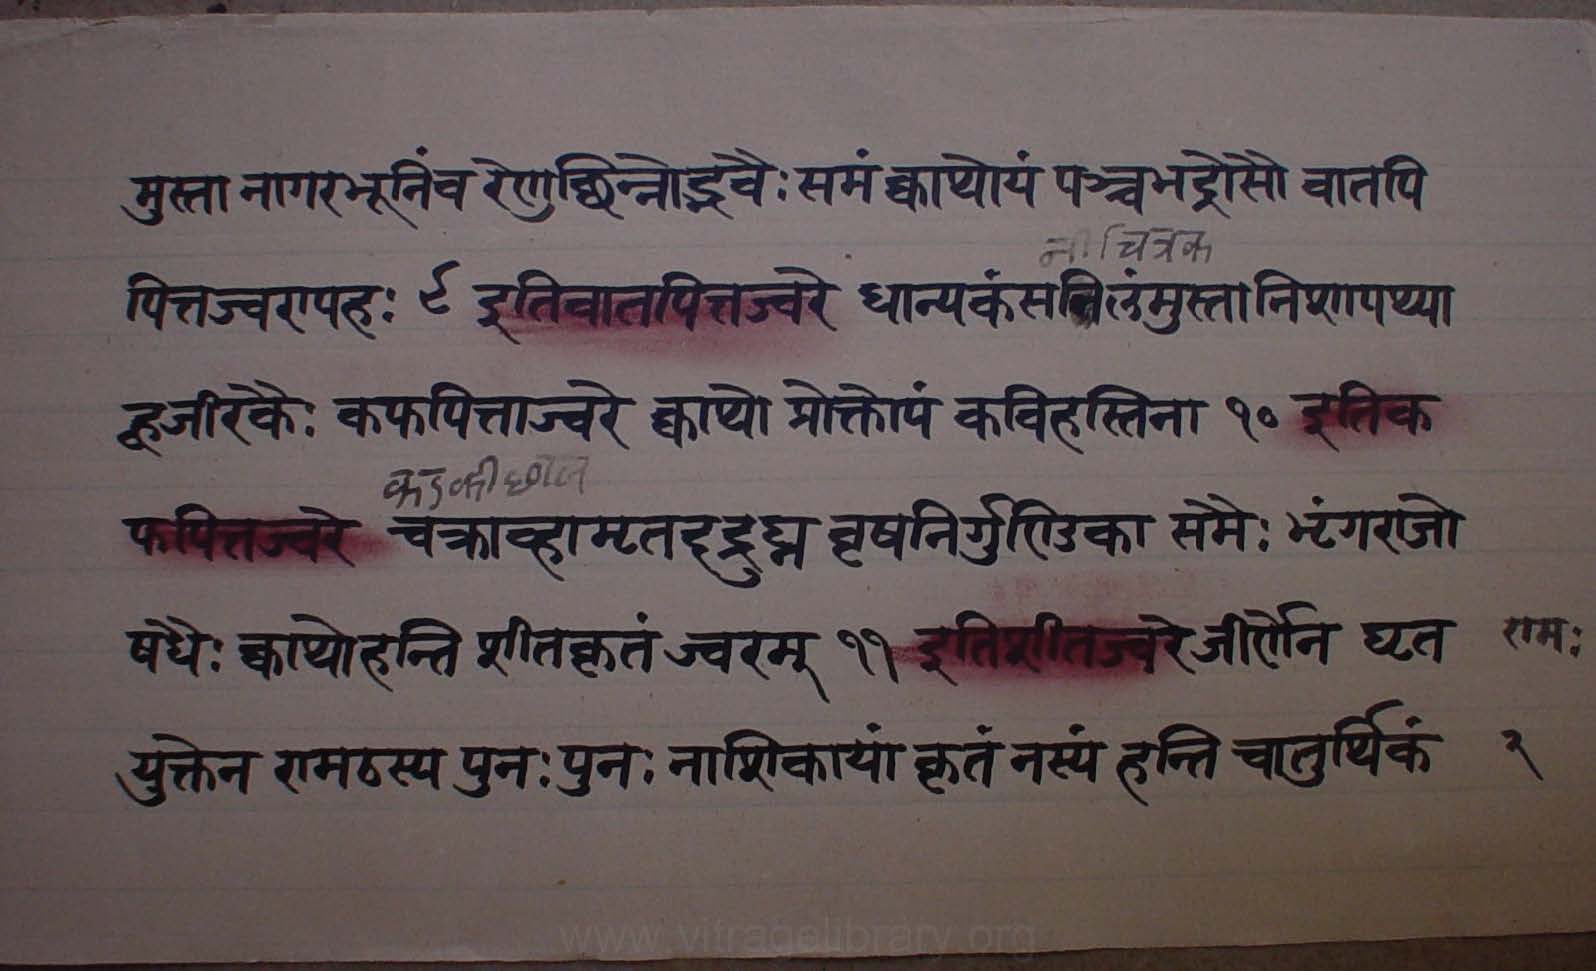 मुस्ता नागरभूनिंव रेणुछिन्नोद्भवैः समं क्वाथोयं पञ्चभद्रोसौ वातपि
चित्रक
पित्तज्वरापहः ९ इतिवातपित्तज्वरे धान्यकंस मुस्तानिशापथ्या
हृजीरकैः कफपित्ताज्वरे क्वाथो प्रोक्तोपं कविहस्तिना १० इतिक
कडकीछाल
फपित्तज्वरे चक्राव्हामृतदद्रुघ्न वृषनिर्गुण्डिका समैः भृंगराजो
षधैः क्वाथोहन्ति शीतकृतं ज्वरम् ११ इतिशीतज्वरे जीर्णेन घृत रामः
युक्तेन रामठस्य पुनःपुनः नाशिकायां कृतं नस्यं हन्ति चातुर्थिकं २
www.vitragelibrary.org